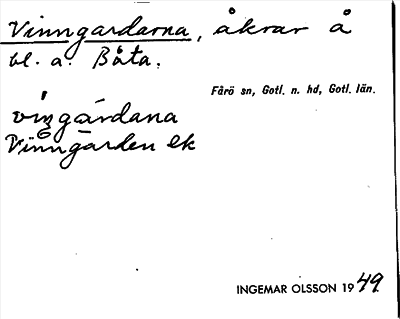 Vinngardarna, åkrar å
bl. a. Båta.
Fårö sn, Gotl. n. hd, Gotl. län.
vingārdana
Vinngården ek
INGEMAR OLSSON 1949